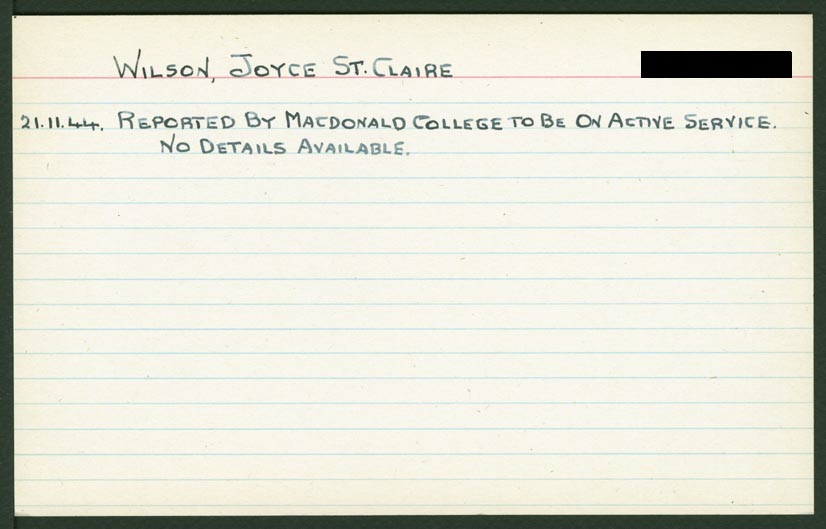 WILSON, JOYCE ST. CLAIRE
21.11.44. REPORTED BY MACDONALD COLLEGE TO BE ON ACTIVE SERVICE.
NO DETAILS AVAILABLE.